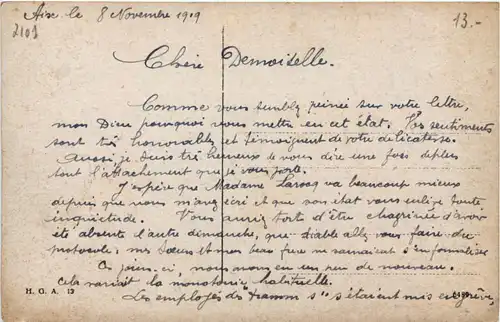 Aix le 8 Novembre 1919
13.-
2101
Chère Demoiselle.
Comme vous semblez peinée sur votre lettre,
mon Dieu pourquoi vous mettre en cet état. Vos sentiments
sont très honorables et témoignent de votre délicatesse.
Aussi, je suis très heureux de vous dire une fois de plus
tout l'attachement que je vous porte.
J'espère que Madame Larocq va beaucoup mieux
depuis que vous m'avez écri et que son état vous enlève toute
inquiétude. Vous auriez tort d'être chagrinée d'avoir
été absente l'autre dimanche, que diable allez vous faire du
protocole, mes sœurs et mon beau frère ne sauraient s'en formaliser
Ces jours-ci, nous avons eu un peu de nouveau.
cela variait la monotonie habituelle.
H. G. A. 12
Les employés des "tramms" s'étaient mis en grève,